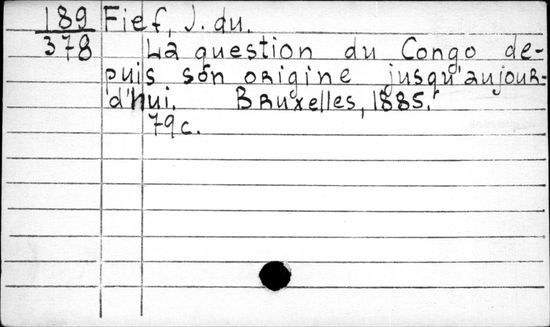 189 Fief, J. du.
378 La question du Congo de-
puis son origine jusqu'aujour-
d'hui. Bruxelles, 1885.
79c.